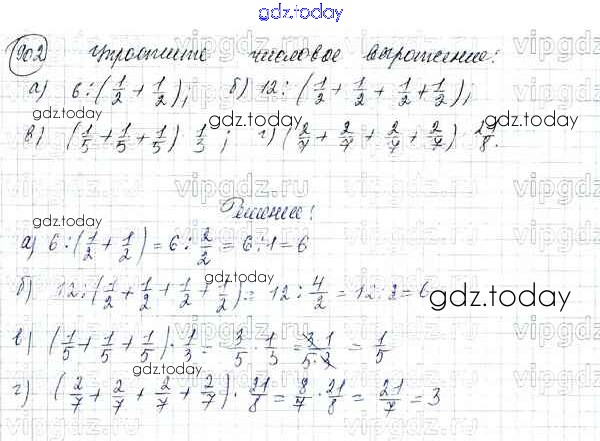 gdz.today
902 Упростите числовое выражение:
а) 6:(1/2+1/2); б) 12:(1/2+1/2+1/2+1/2);
gdz.today
gdz.today
в) (1/5+1/5+1/5)·1/3; г) (2/7+2/7+2/7+2/7)·21/8.
vipgdz.ru
gdz.today
Решение:
а) 6:(1/2+1/2)=6:2/2=6:1=6
gdz.today
б) 12:(1/2+1/2+1/2+1/2)=12:4/2=12:2=6
gdz.today
в) (1/5+1/5+1/5)·1/3=3/5·1/3=3·1/5·3=1/5
г) (2/7+2/7+2/7+2/7)·21/8=8/7·21/8=21/7=3